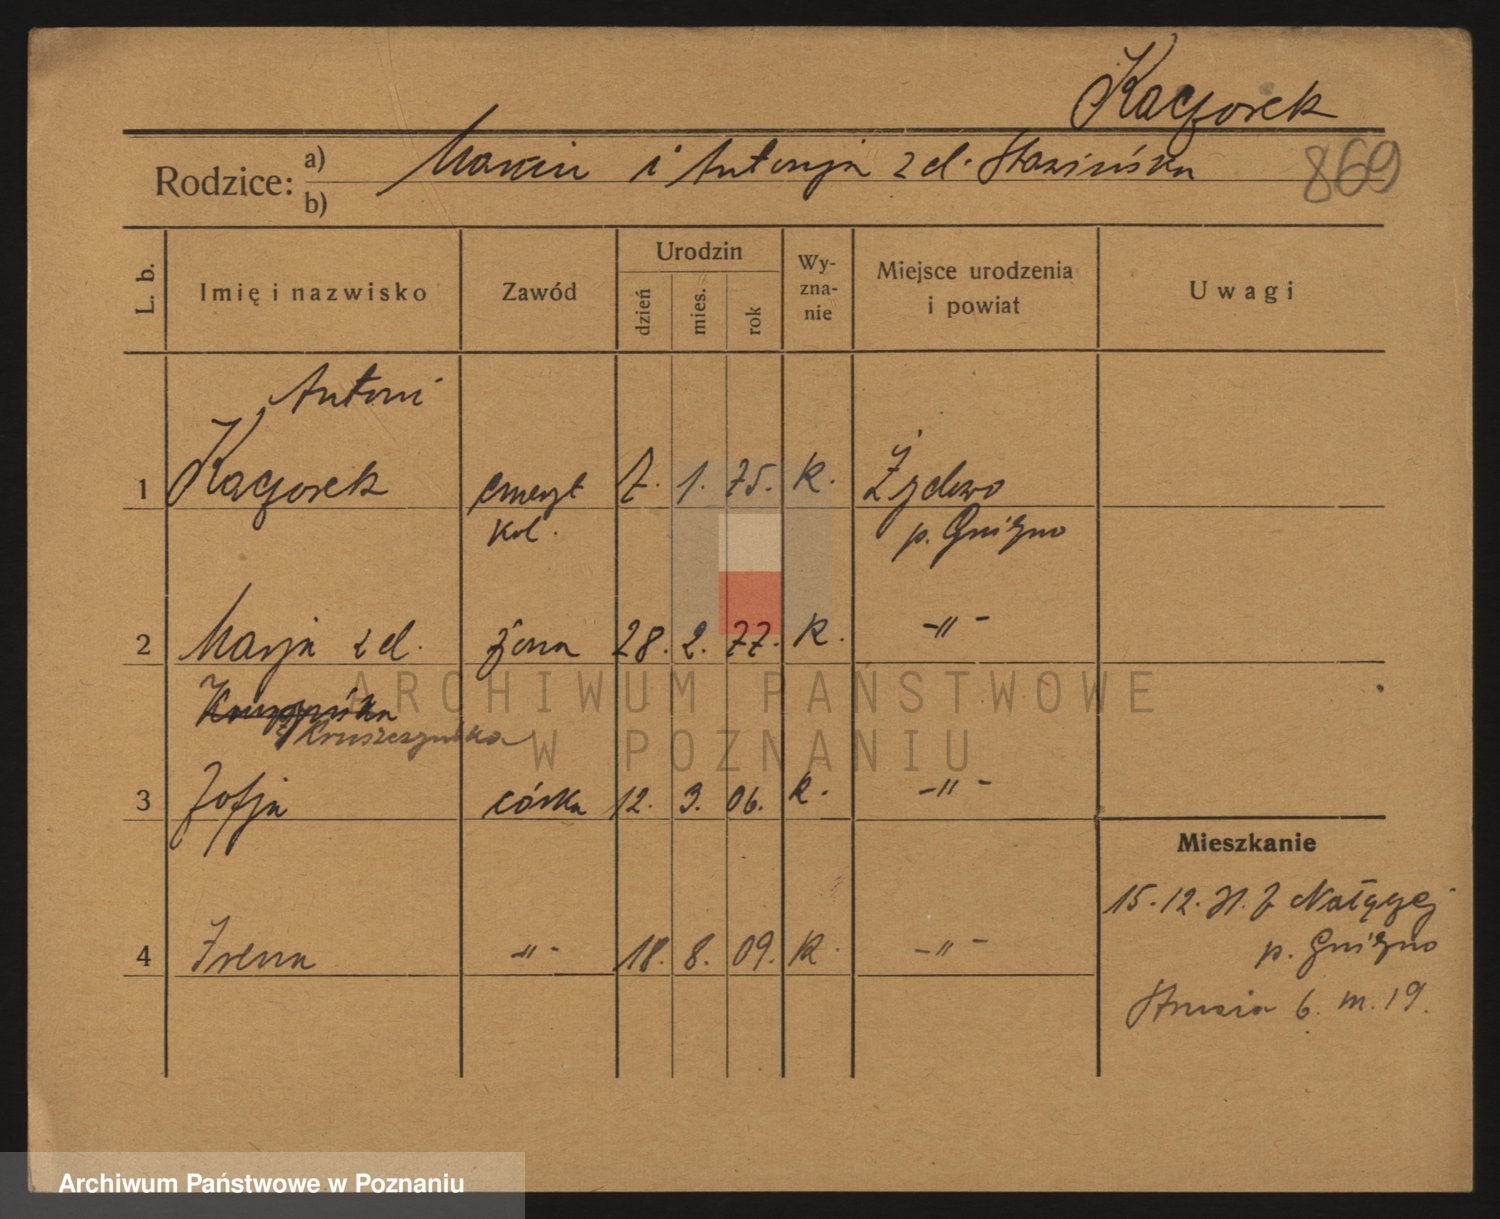 Kaczorek
Rodzice: a) Marcin i Antonja z d. Stasińska
b)
869
L. b. Imię i nazwisko Zawód Urodzin dzień mies. rok Wy-zna-nie Miejsce urodzenia i powiat Uwagi
Antoni
1 Kaczorek emeryt 7. 1. 75. K. Żydowo
kol. p. Gniezno
2 Marja z d. żona 28. 2. 77. K. -"-
Kruszczyńska
3 Zofja córka 12. 3. 06. K. -"-
Mieszkanie
15.12.31. z
4 Irena -"- 18. 8. 09. K. -"- p. Gniezno
Strusia 6. m. 19.
ARCHIWUM PAŃSTWOWE
W POZNANIU
Archiwum Państwowe w Poznaniu